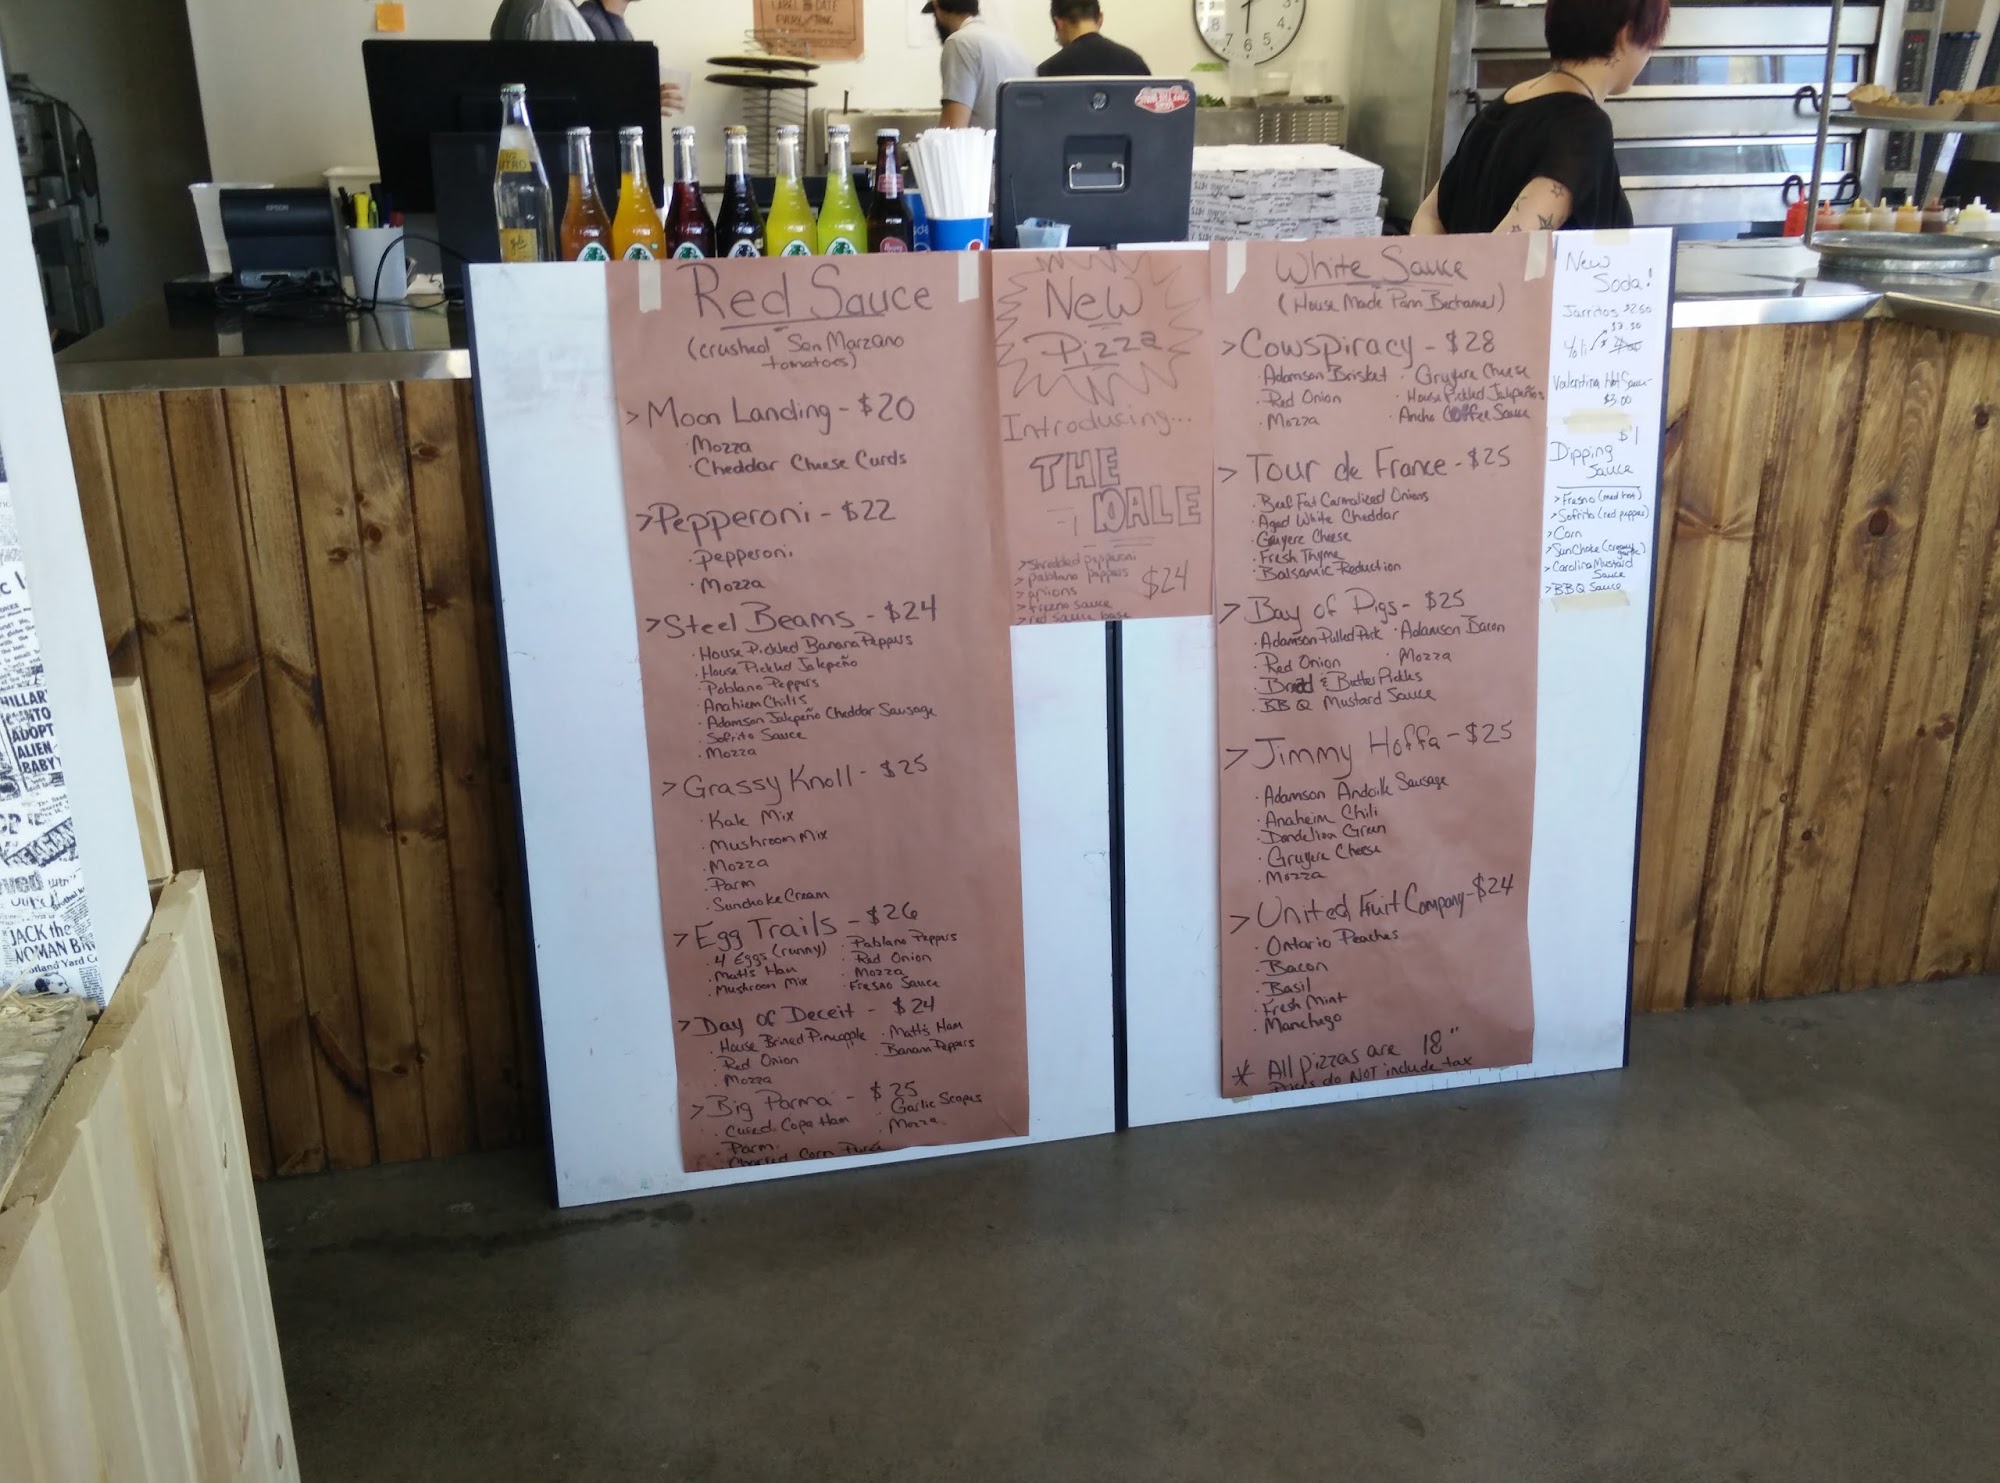 LABEL DATE
EVERYTHING
EPSON
Red Sauce
(crushed San Marzano
tomatoes)
> Moon Landing - $20
· Mozza
· Cheddar Cheese Curds
> Pepperoni - $22
· Pepperoni
· Mozza
> Steel Beams - $24
· House Pickled Banana Peppers
· House Pickled Jalepeño
· Poblano Peppers
· Anahiem Chilis
· Adamson Jalepeño Cheddar Sausage
· Sofrito Sauce
· Mozza
> Grassy Knoll - $25
· Kale Mix
· Mushroom Mix
· Mozza
· Parm
· Sunchoke Cream
> Egg Trails - $26
· 4 Eggs (runny) · Pablano Peppers
· Matt's Ham · Red Onion
· Mushroom Mix · Mozza
· Fresno Sauce
> Day of Deceit - $24
· House Brined Pineapple · Matt's Ham
· Red Onion · Banana Peppers
· Mozza
> Big Parma - $25
· Cured Copa Ham · Garlic Scapes
· Parm · Mozza
· Charred Corn Pureé
New
Pizza
Introducing...
THE
DALE
> Shredded pepperoni
> pablano peppers
> onions
> fresno sauce
> red sauce base
$24
White Sauce
(House Made Parm Bechamel)
> Cowspiracy - $28
· Adamson Brisket · Gruyere Cheese
· Red Onion · House Pickled Jalepeños
· Mozza · Ancho Coffee Sauce
> Tour de France - $25
· Beef Fat Carmalized Onions
· Aged White Cheddar
· Gruyere Cheese
· Fresh Thyme
· Balsamic Reduction
> Bay of Pigs - $25
· Adamson Pulled Pork · Adamson Bacon
· Red Onion · Mozza
· Bread & Butter Pickles
· BBQ Mustard Sauce
> Jimmy Hoffa - $25
· Adamson Andoille Sausage
· Anaheim Chili
· Dandelion Green
· Gruyere Cheese
· Mozza
> United Fruit Company - $24
· Ontario Peaches
· Bacon
· Basil
· Fresh Mint
· Manchego
* All pizzas are 18"
Prices do NOT include tax
New
Soda!
Jarritos $2.50
$3.50
Yoli
Valentina Hot Sauce
$3.00
$1
Dipping
Sauce
> Fresno (med hot)
> Sofrito (red pepper)
> Corn
> Sunchoke (creamy garlic)
> Carolina Mustard
Sauce
> BBQ Sauce
HILLAR
ADOPT
ALIEN
BABY
JACK the
WOMAN
otland Yard